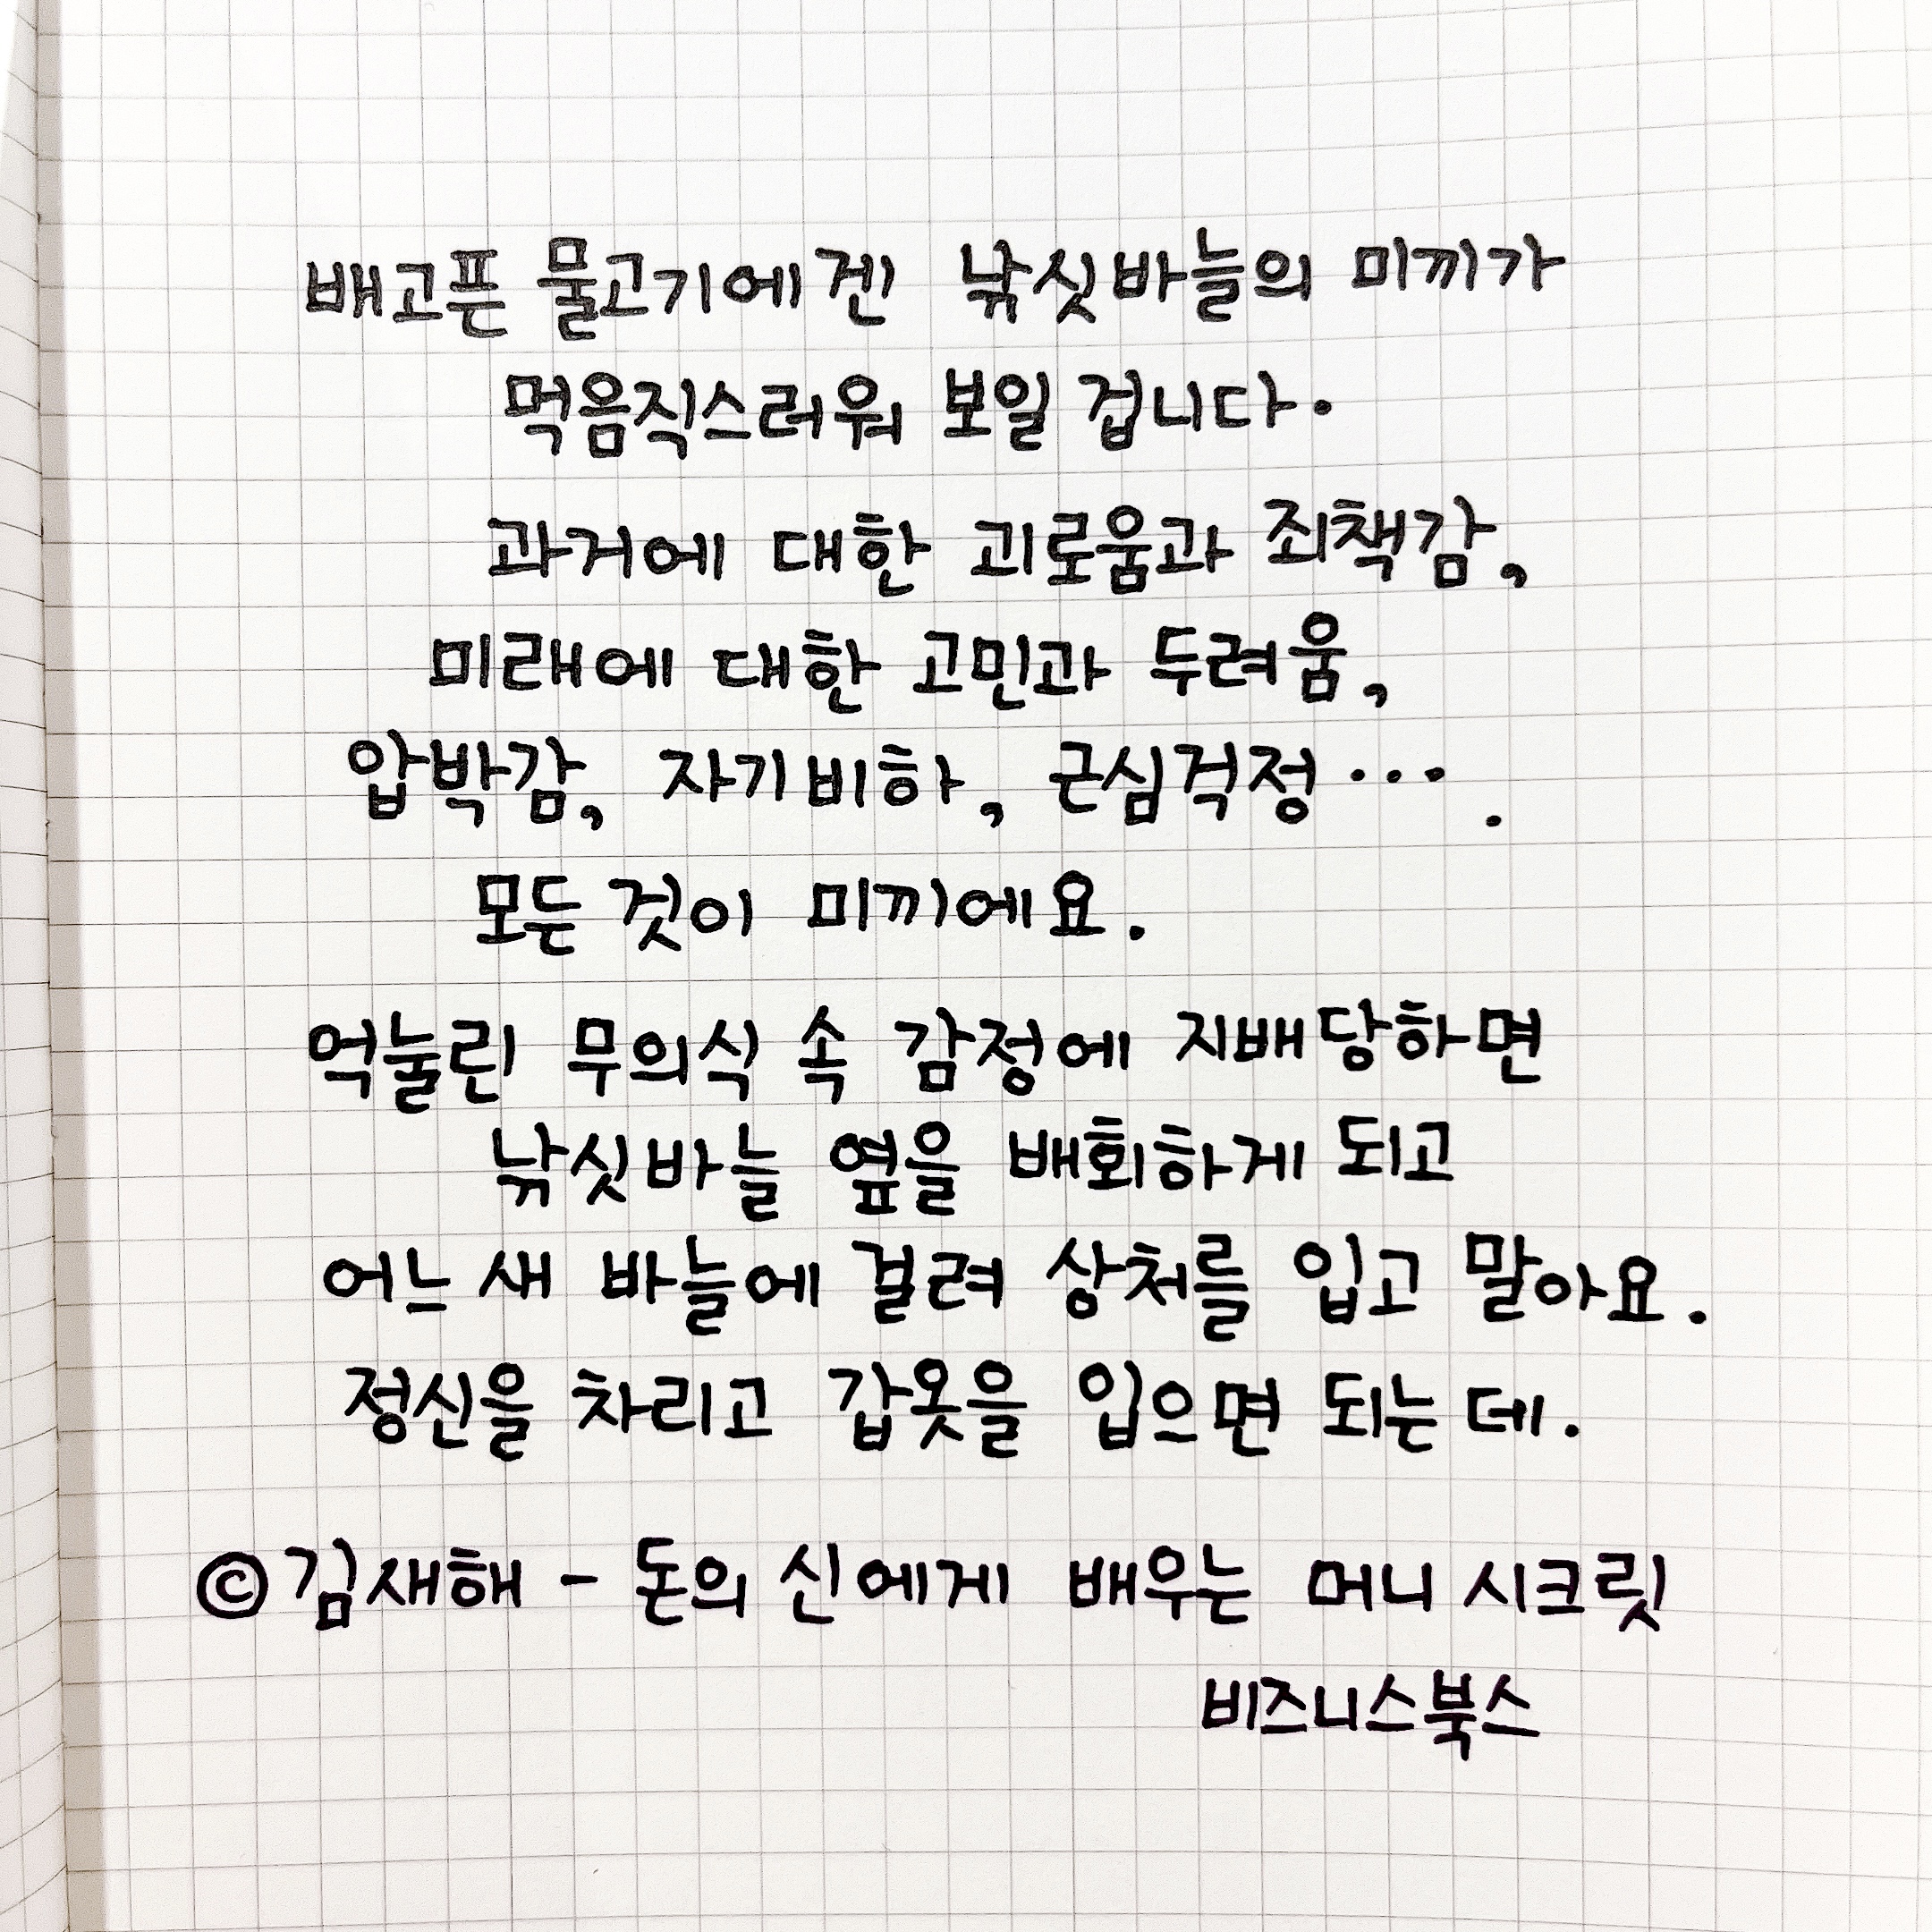 배고픈 물고기에겐 낚싯바늘의 미끼가
먹음직스러워 보일 겁니다.
과거에 대한 괴로움과 죄책감,
미래에 대한 고민과 두려움,
압박감, 자기비하, 근심걱정 ….
모든 것이 미끼에요.
억눌린 무의식 속 감정에 지배당하면
낚싯바늘 옆을 배회하게 되고
어느 새 바늘에 걸려 상처를 입고 말아요.
정신을 차리고 갑옷을 입으면 되는데.
©김새해 - 돈의 신에게 배우는 머니 시크릿
비즈니스북스